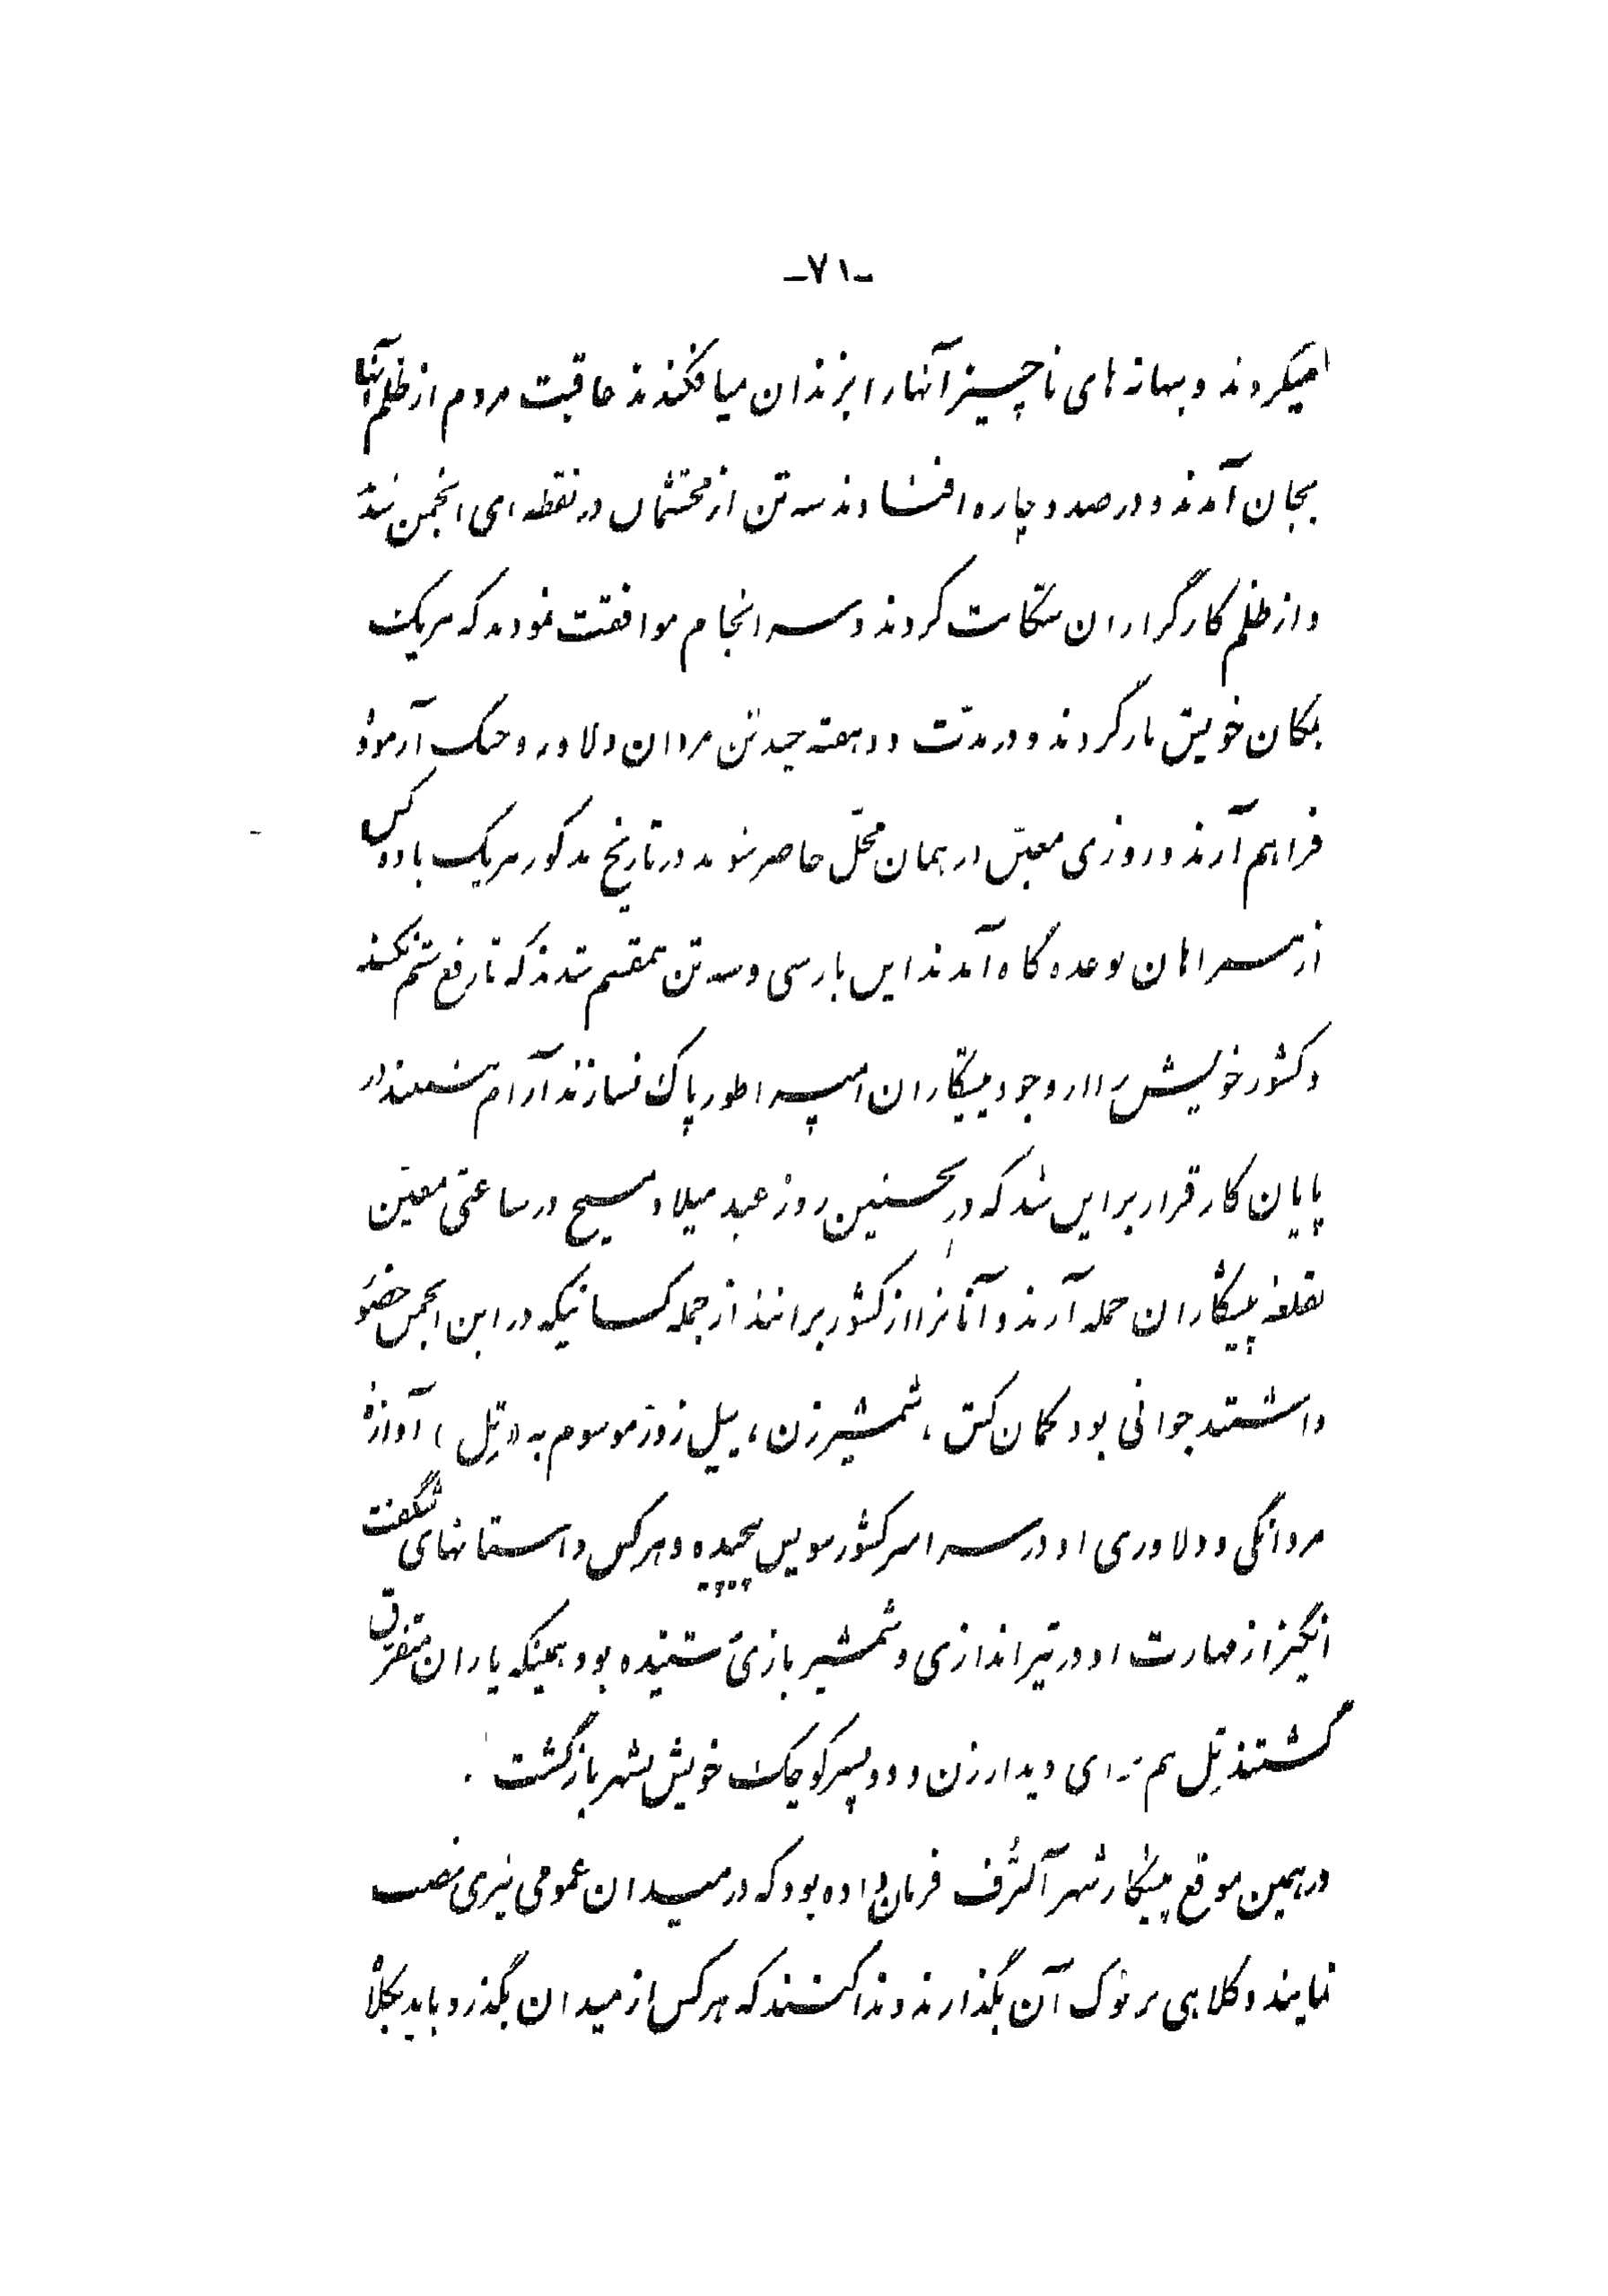 -۷۱-
میکردند و ببهانه های ناچیز آنها را بزندان میافکندند عاقبت مردم از ظلم آنها
بجان آمدند و درصدد چاره افتادند سه تن از محتشمان در نقطه ای انجمن شدند
و از ظلم کارگزاران شکایت کردند و سرانجام موافقت نمودند که هر یک
بمکان خویش بازگردند و در مدت دو هفته چند تن مردان دلاور و جنگ آزموده
فراهم آرند و روزی معین در همان محل حاضر شوند در تاریخ مذکور هر یک با ده کس
از همراهان بوعده گاه آمدند این بار سی و سه تن همقسم شدند که تا رفع ستم نکنند
و کشور خویش را از وجود پیشکاران امپراطور پاک نسازند آرام ننشینند در
پایان کار قرار بر این شد که در نخستین روز عید میلاد مسیح در ساعتی معین
بقلعه پیشکاران حمله آرند و آنانرا از کشور برانند از جمله کسانیکه در این انجمن حضور
داشتند جوانی بود کمان کش، شمشیرزن، پیل زور موسوم به «تِل» آوازهٔ
مردانگی و دلاوری او در سراسر کشور سویس پیچیده و هرکس داستانهای شگفت
انگیز از مهارت او در تیراندازی و شمشیر بازی شنیده بود همینکه یاران متفرق
گشتند تِل هم برای دیدار زن و دو پسر کوچک خویش بشهر بازگشت .
در همین موقع پیشکار شهر آلترُف فرمان داده بود که در میدان عمومی تیری نصب
نمایند و کلاهی بر نوک آن بگذارند و ندا کنند که هرکس از میدان بگذرد باید بکلاه